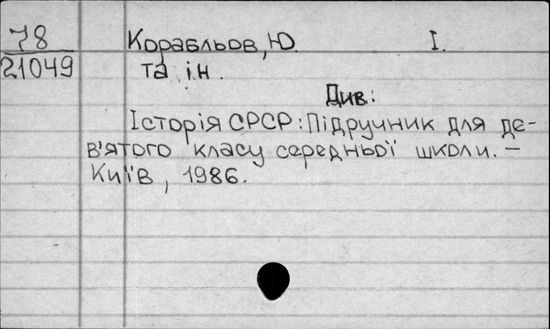 78
21049
Корабльов, Ю. І.
та ін.
Див:
Історія СРСР: Підручник для де-
в'ятого класу середньої школи. –
Київ, 1986.